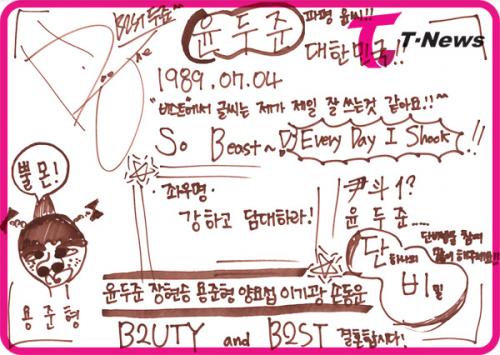 B2ST 두준~
윤두준
파평 윤씨!!
대한민국!!
T-News
1989.07.04
"비스트에서 글씨는 제가 제일 잘 쓰는것 같아요!!"
So Beast~
Every Day I Shock !!
뿔몬!
좌우명.
강하고 담대하라!
尹斗1?
윤두준.....
단
하나의
비밀
용준형
윤두준 장현승 용준형 양요섭 이기광 손동운
B2UTY and B2ST 결혼합시다!